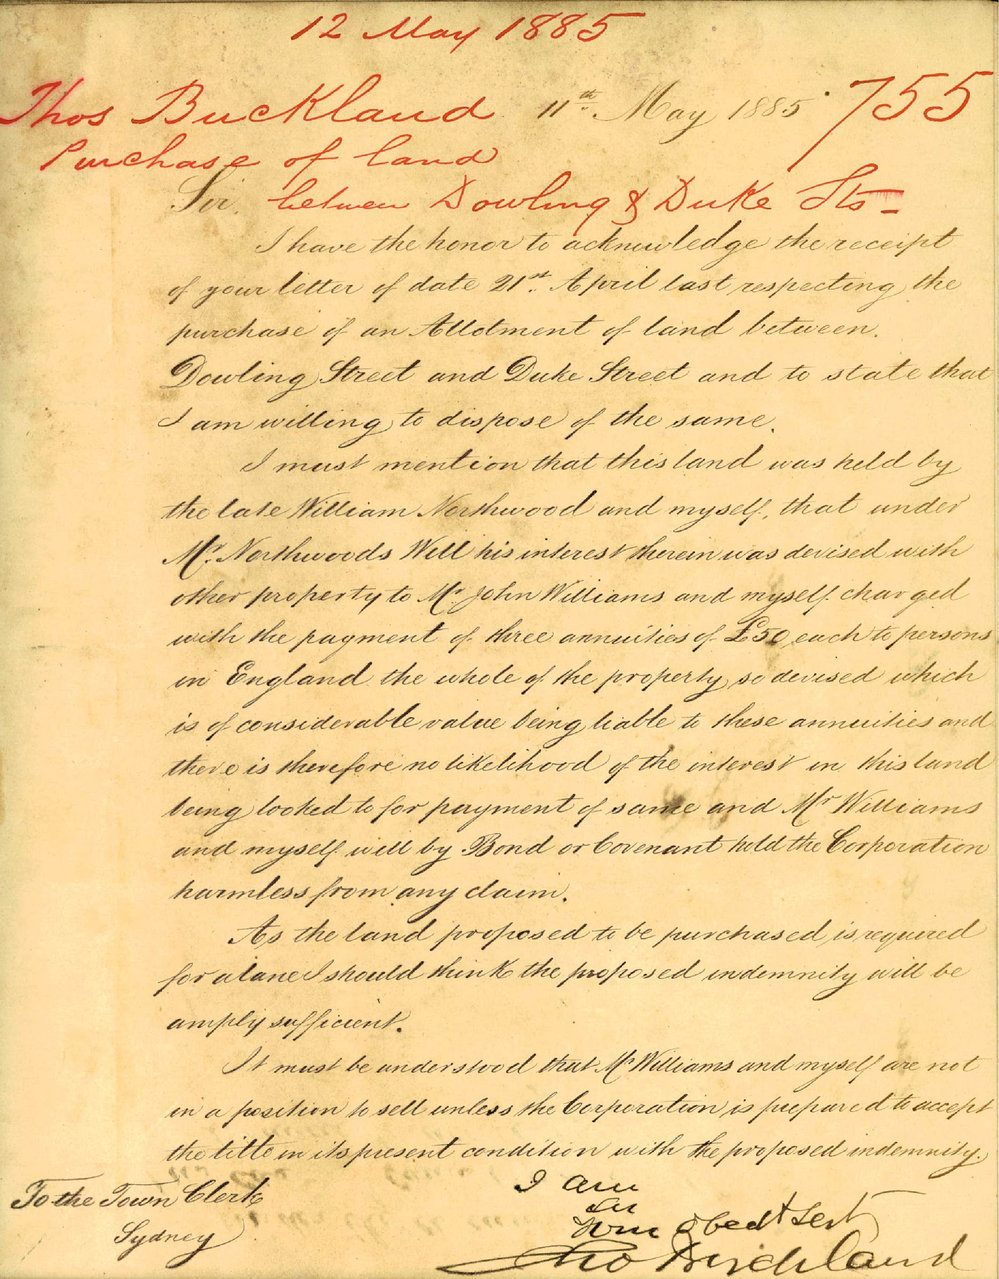 12 May 1885
Thos Buckland 11th May 1885 755
Purchase of land
Sir. between Dowling & Duke Sts
I have the honor to acknowledge the receipt
of your letter of date 21st April last respecting the
purchase of an Allotment of land between
Dowling Street and Duke Street and to state that
I am willing to dispose of the same.
I must mention that this land was held by
the late William Northwood and myself, that under
Mr. Northwoods Will his interest therein was devised with
other property to Mr John Williams and myself charged
with the payment of three annuities of £50 each to persons
in England the whole of the property so devised which
is of considerable value being liable to these annuities and
there is therefore no likelihood of the interest in this land
being looked to for payment of same and Mr Williams
and myself will by Bond or Covenant hold the Corporation
harmless from any claim.
As the land proposed to be purchased is required
for a lane I should think the proposed indemnity will be
amply sufficient.
It must be understood that Mr Williams and myself are not
in a position to sell unless the Corporation is prepared to accept
the title in its present condition with the proposed indemnity.
I am
To the Town Clerk Sir
Your obedt Sert
Sydney Tho Buckland